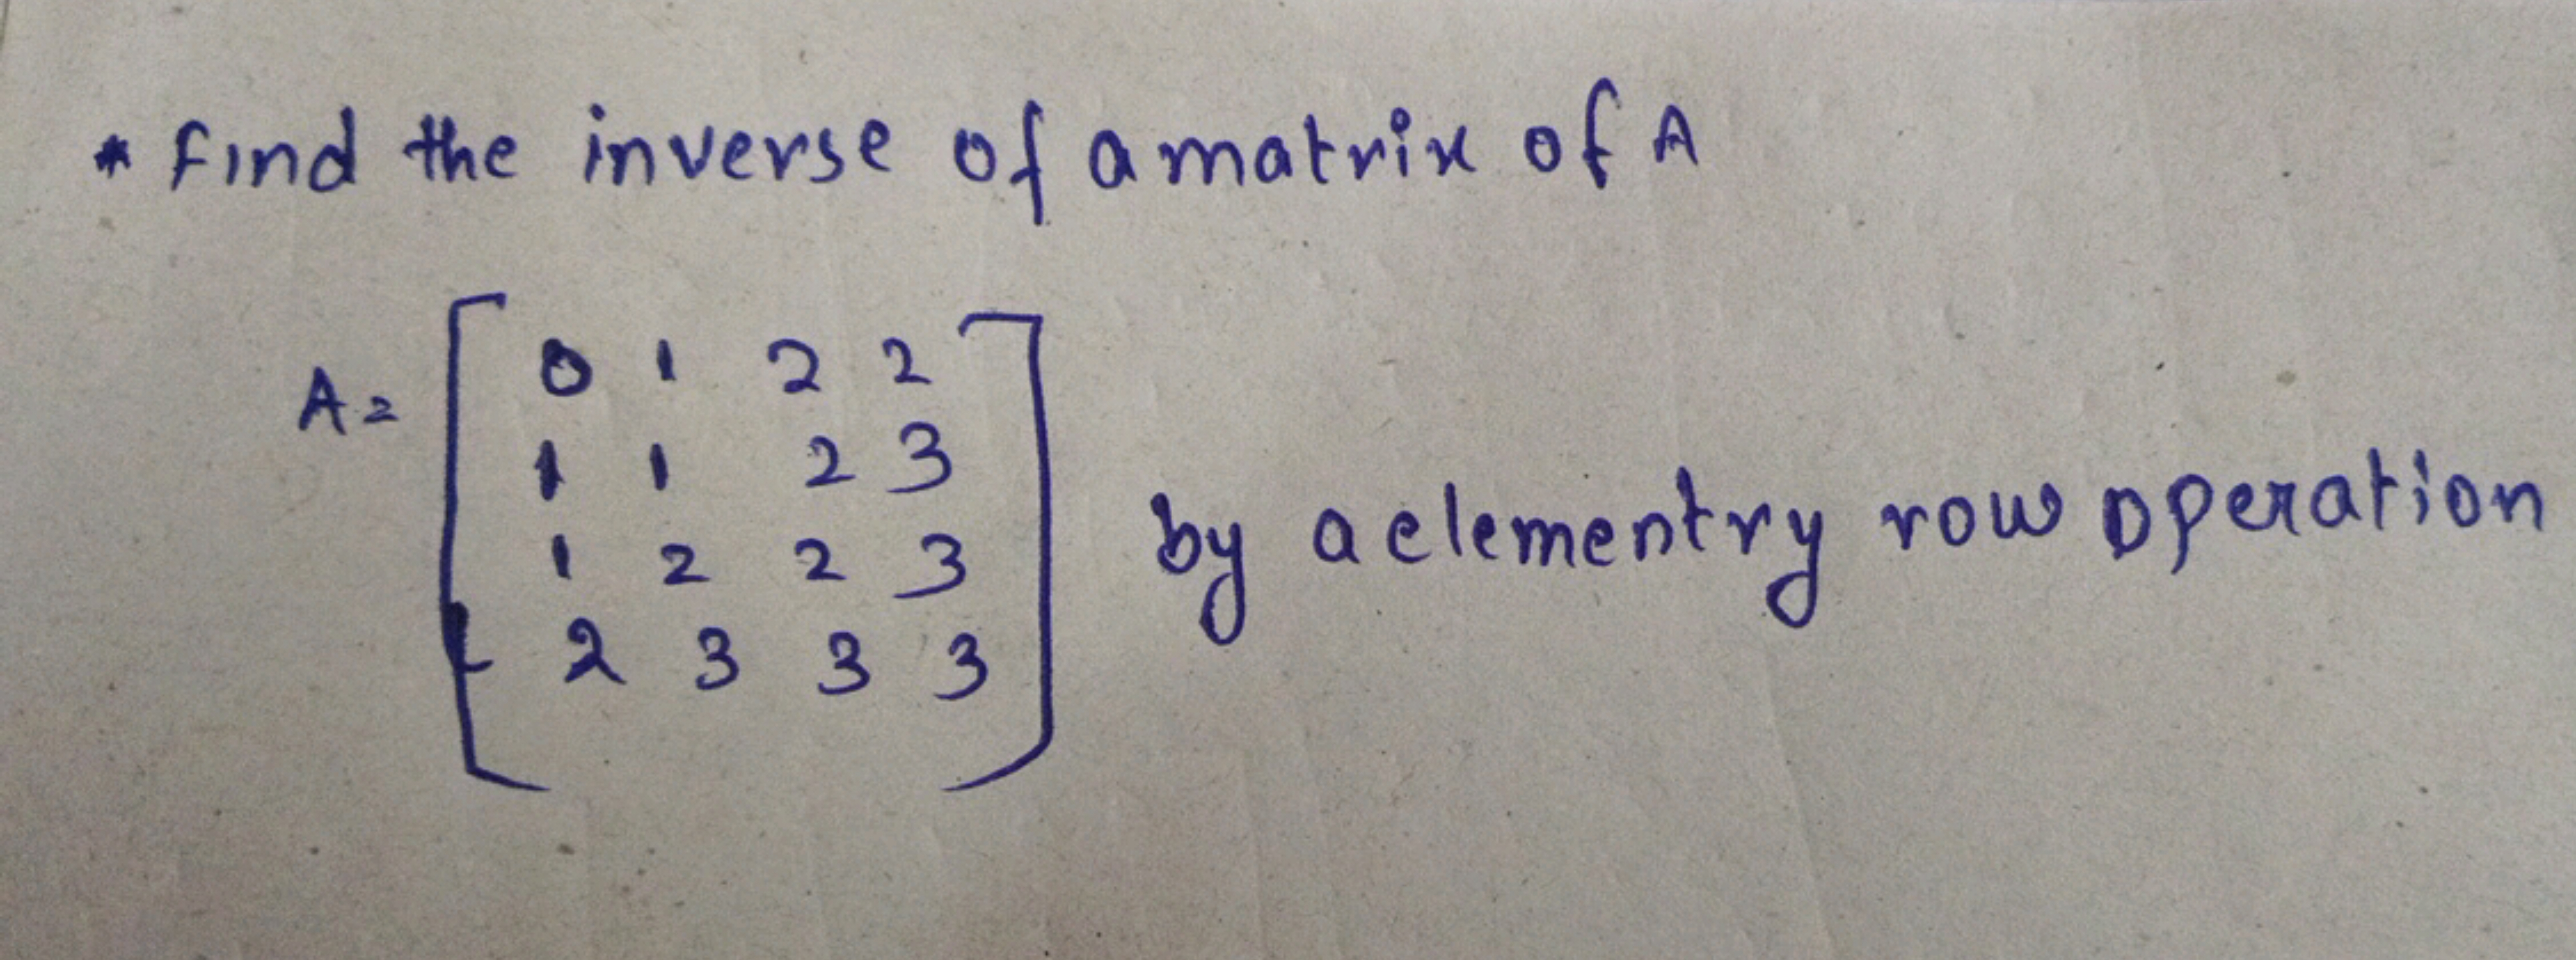 * Find the inverse of a matrix of A
0 1 2 2
A= 1 1 2 3
1 2 2 3 by a elementry row operation
2 3 3 3